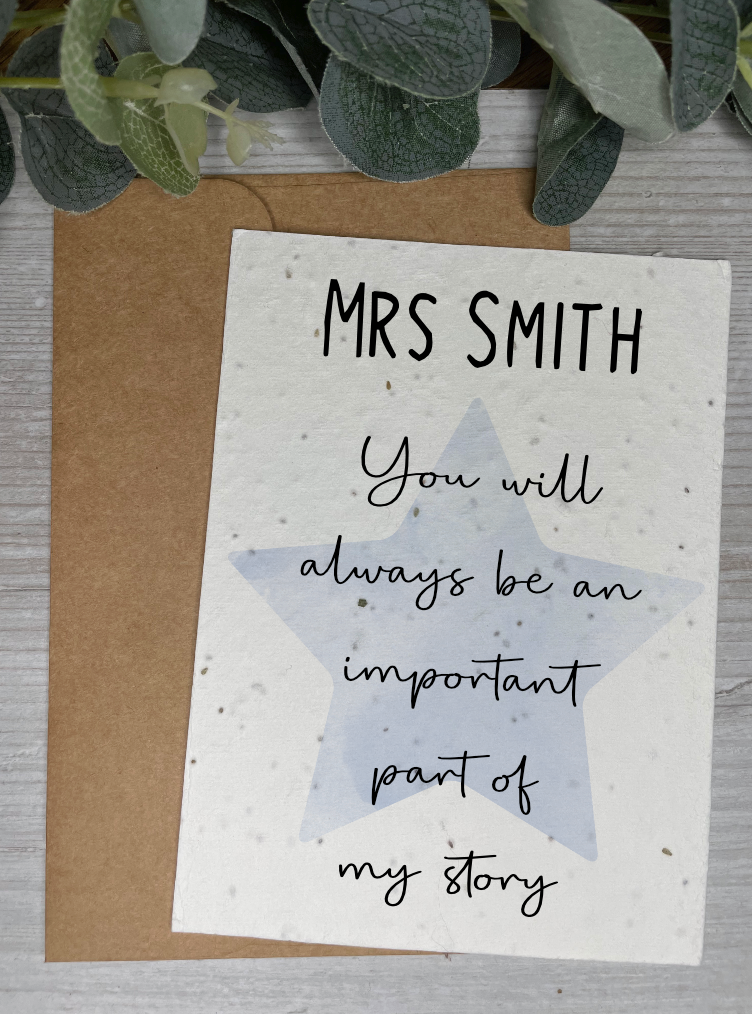 MRS SMITH
You will
always be an
important
part of
my story